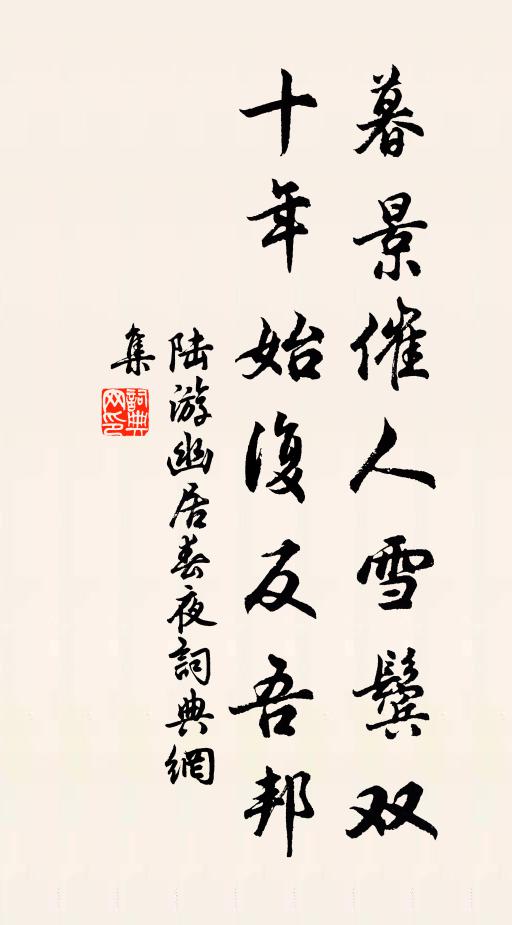 暮景催人雪鬓双
十年始復反吾邦
陆游幽居春夜詞典網
集
詞典
网印